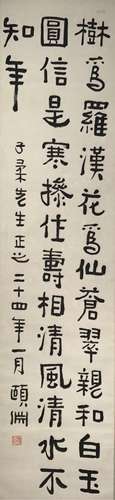 樹爲羅漢花爲仙蒼翠親和白玉
圓信是寒撡住壽相清風清水不
知年
子柔先生正之二十四年一月頤淵